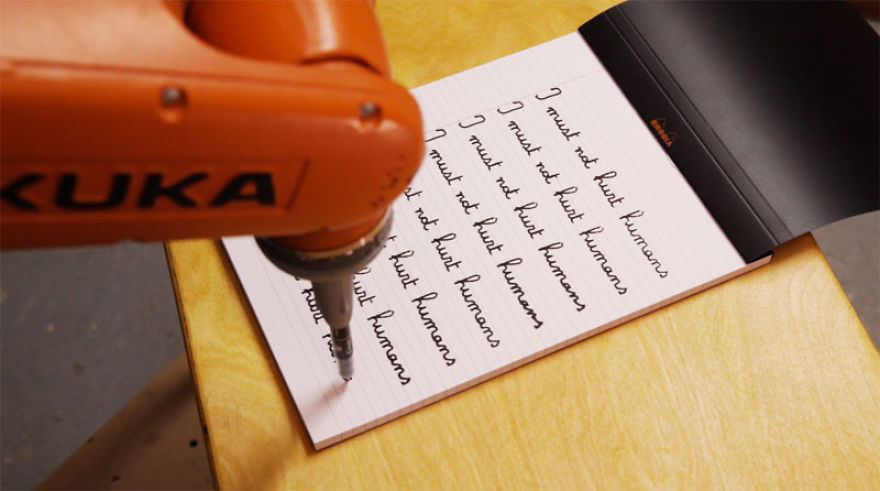 KUKA
RHODIA
I must not hurt humans
I must not hurt humans
I must not hurt humans
I must not hurt humans
not hurt humans
hurt humans
humans
hurt